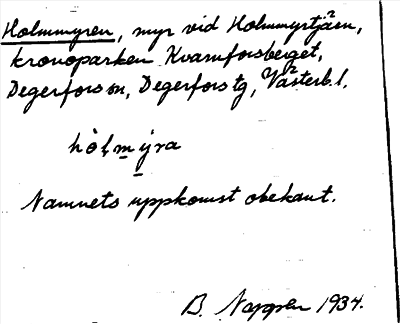 Holmmyren, myr vid Holmmyrtjäen,
kronoparken Kvarnforsberget,
Degerfors sn, Degerfors tg, Västerb. l.
hòlmýra
Namnets uppkomst obekant.
B. 1934.